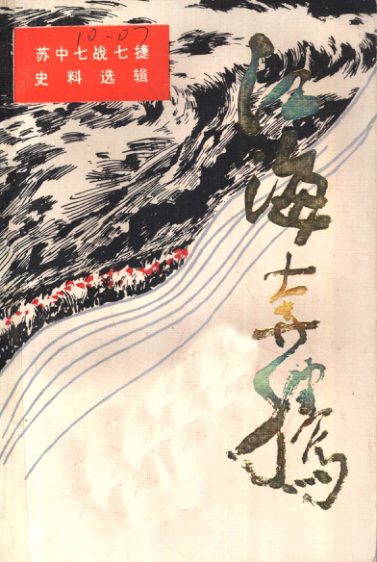 10-07
苏中七战七捷
史料选辑
江海奔腾